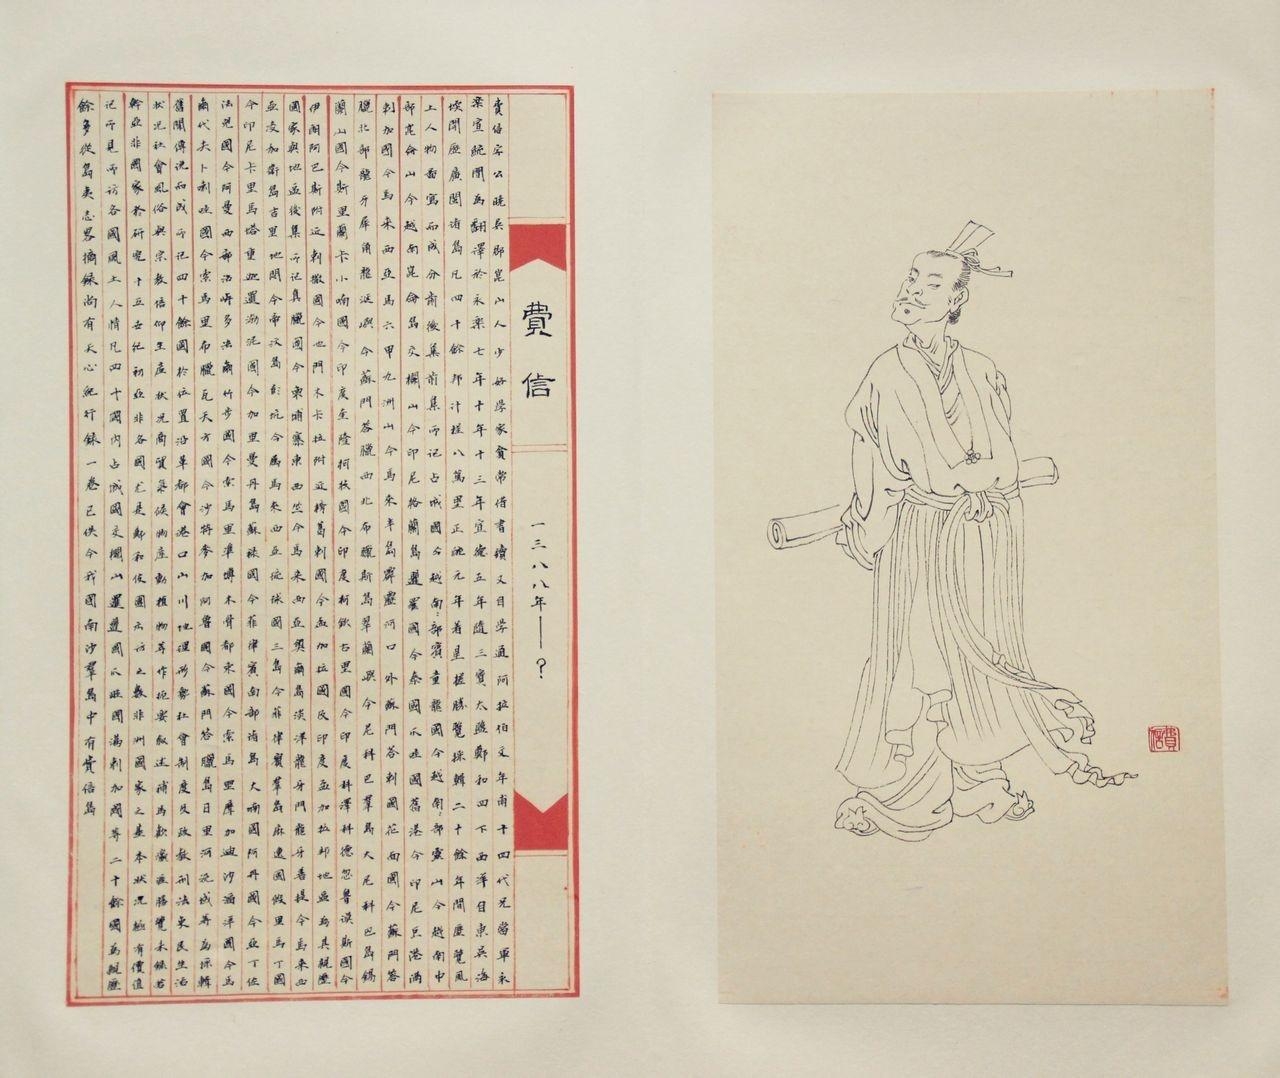 費信 一三八八年——？
費信字公曉吳郡崑山人少好學家貧常借書讀又自學通阿拉伯文年甫十四代兄當軍永
樂宣統間為翻譯於永樂七年十年十三年宣德五年隨三寶太監鄭和四下西洋自東吳海
埃開歷廣閱諸島凡四十餘邦計程八萬里正統元年著星槎勝覽採輯二十餘年間歷覽風
土人物圖寫而成分前後集前集所記占城國今越南中部賓童龍國今越南南部靈山今越南中
部崑崙山今越南崑侖島交欄山今印尼格蘭島暹羅國今泰國爪哇國舊港今印尼巨港滿
剌加國今馬來西亞馬六甲九洲山今馬來半島霹靂河口外蘇門答剌國花面國今蘇門答
臘北部龍牙犀角龍涎嶼今蘇門答臘西北布臘斯島翠蘭嶼今尼科巴羣島大尼科巴島錫
蘭山國今斯里蘭卡小喃國今印度奎隆柯枝國今印度柯欽古里國今印度科澤科德忽魯謨斯國今
伊朗阿巴斯附近剌撒國今也門木卡拉附近榜葛剌國今孟加拉國及印度孟加拉邦地區為其親歷
國家與地區後集所記真臘國今柬埔寨東西竺今馬來西亞奧爾島淡洋龍牙門龍牙菩提今馬來西
亞凌加衛島吉里地悶今帝汶島彭坑今屬馬來西亞琉球國三島今菲律賓羣島麻逸國假里馬丁國
今印尼卡里馬塔重迦邏渤泥國今加里曼丹島蘇祿國今菲律賓南部諸島大喃國阿丹國今亞丁佐
法兒國今阿曼西部沿岸多法爾竹步國今索馬里準博木骨都束國今索馬里摩加迪沙溜洋國今馬
爾代夫卜剌哇國今索馬里布臘瓦天方國今沙特麥加阿魯國今蘇門答臘島日里河流域等為採輯
舊聞傳說而成所記四十餘國於位置沿革都會港口山川地理形勢社會制度及政教刑法吏民生活
狀況社會風俗與宗教信仰生產狀況商貿氣候物產動植物等作扼要敘述補馬歡瀛涯勝覽未錄若
幹亞非國家於研究十五世紀初亞非各國尤是鄭和使團出訪之數非洲國家之基本狀況極有價值
記所見所訪各國風土人情凡四十國內占城國交欄山暹邏國爪哇國滿剌加國等二十餘國為親歷
餘多從島夷志畧摘錄尚有天心紀行錄一卷已佚今我國南沙羣島中有費信島
費信